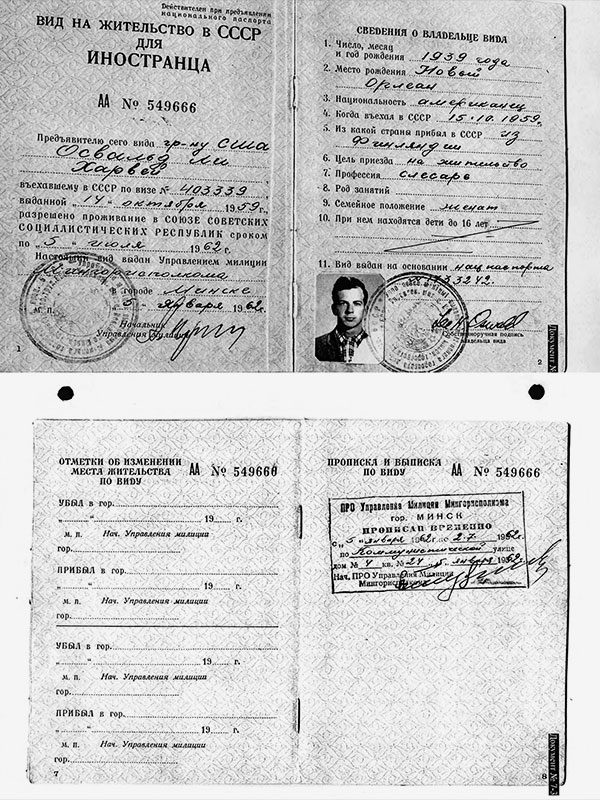 Действителен при предъявлении
национального паспорта
ВИД НА ЖИТЕЛЬСТВО В СССР
ДЛЯ
ИНОСТРАНЦА
АА № 549666
Предъявителю сего вида гр-ну США
Освальд Ли
Харвей
въехавшему в СССР по визе № 403339
выданной „14“ октября 1959 г.
разрешено проживание в СОЮЗЕ СОВЕТСКИХ
СОЦИАЛИСТИЧЕСКИХ РЕСПУБЛИК сроком
по „5“ июля 1962 г.
Настоящий вид выдан Управлением милиции
Мингорисполкома
в городе Минске
„5“ января 1962 г.
М. П.
Начальник
Управления Милиции
1
СВЕДЕНИЯ О ВЛАДЕЛЬЦЕ ВИДА
1. Число, месяц
и год рождения 1939 года
2. Место рождения Новый
Орлеан
3. Национальность американец
4. Когда въехал в СССР 15.10.1959 г.
5. Из какой страны прибыл в СССР из
Финляндии
6. Цель приезда на жительство
7. Профессия слесарь
8. Род занятий
9. Семейное положение женат
10. При нем находятся дети до 16 лет
11. Вид выдан на основании нац. паспорта
Собственноручная подпись
владельца вида
2
Документ №
ОТМЕТКИ ОБ ИЗМЕНЕНИИ
МЕСТА ЖИТЕЛЬСТВА
ПО ВИДУ
АА № 549666
УБЫЛ в гор.
„ “ 19 г.
м. п. Нач. Управления милиции
гор.
ПРИБЫЛ в гор.
„ “ 19 г.
м. п. Нач. Управления милиции
гор.
УБЫЛ в гор.
„ “ 19 г.
м. п. Нач. Управления милиции
гор.
ПРИБЫЛ в гор.
„ “ 19 г.
м. п. Нач. Управления милиции
гор.
7
ПРОПИСКА И ВЫПИСКА
ПО ВИДУ
АА № 549666
ПРО Управления Милиции Мингорисполкома
гор. МИНСК
ПРОПИСАН ВРЕМЕННО
с „5“ января 1962 г. по 2.7. 1962 г.
по Коммунистической улице
дом № 4 кв. № 24 „5“ января 1962 г.
Нач. ПРО Управления Милиции
Мингорисполкома
8
Документ № 7-5